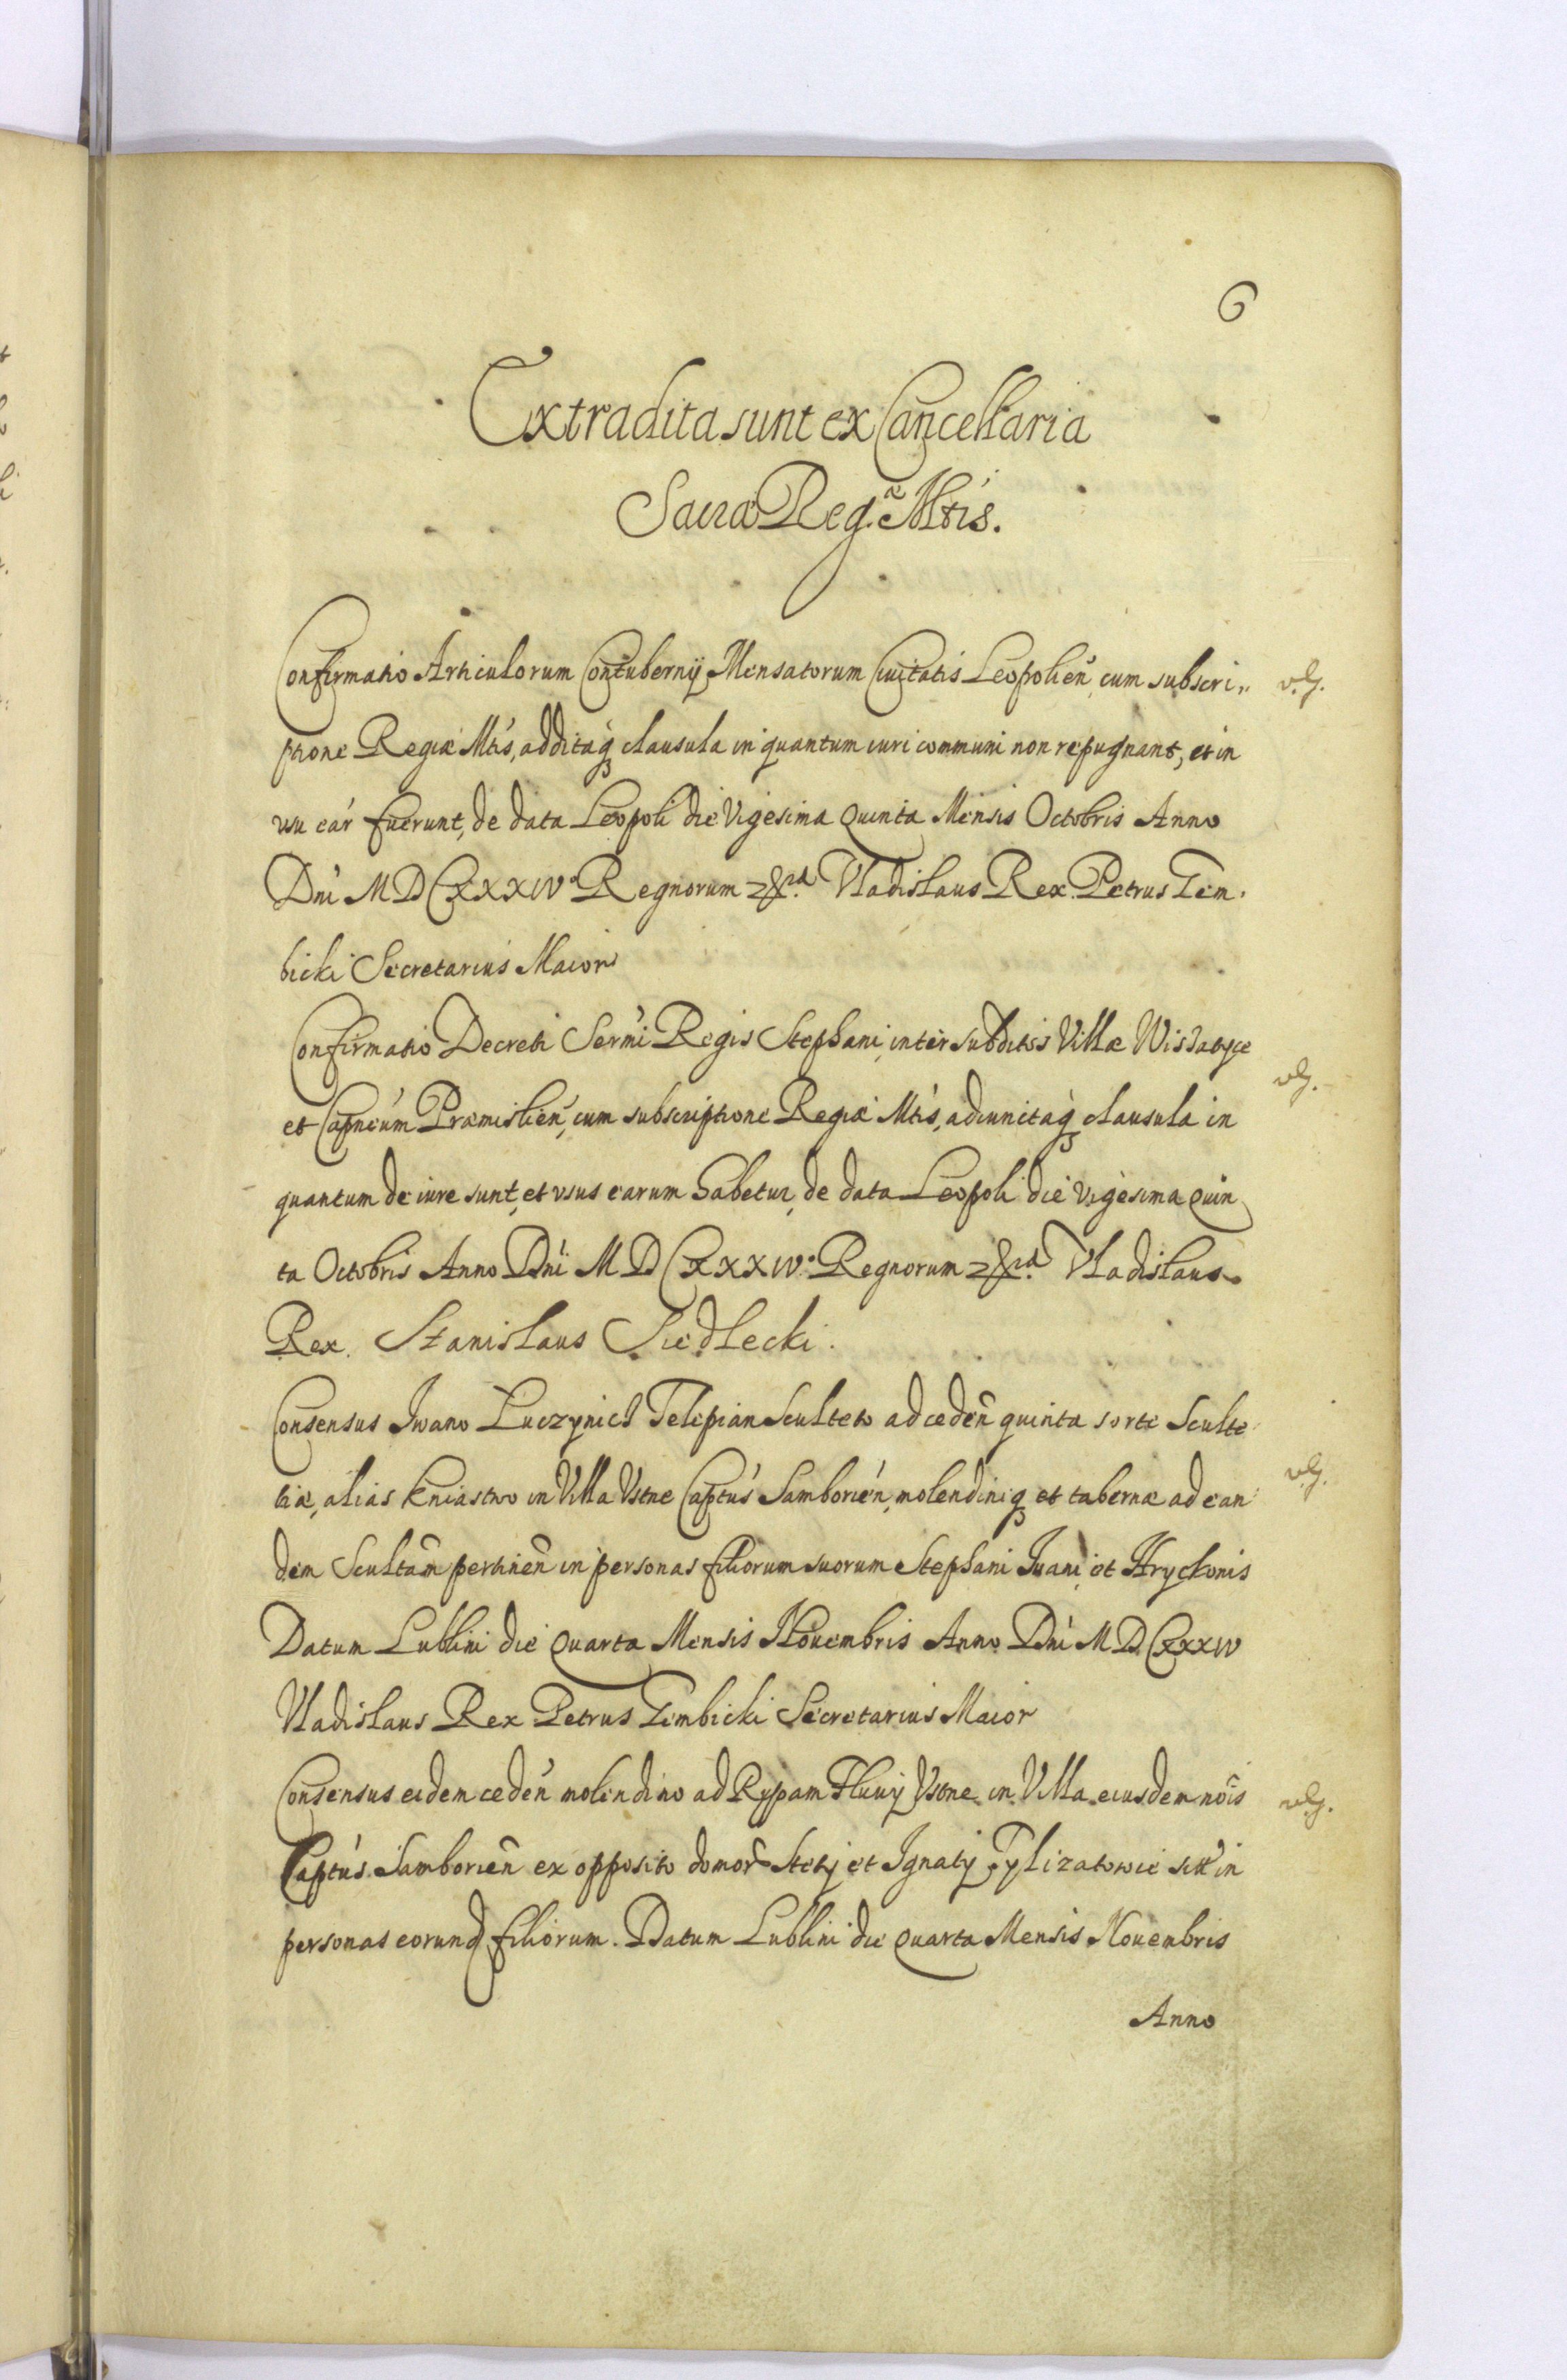 6
Extradita sunt ex Cancellaria
Sacræ Reg.æ Mtis.
Confirmatio Articulorum Contubernij Mensatorum Civitatis Leopolien̄, cum subscri„
ptione Regiæ Mtis, additaq; clausula in quantum iuri communi non repugnant, et in
usu ear̄ fuerunt, de data Leopoli die Vigesima Quinta Mensis Octobris Anno
Dni M D CXXXIV° Regnorum &ra. Vladislaus Rex. Petrus Gem.
bicki Secretarius Maior
Confirmatio Decreti Serm̄i Regis Stephani, inter subditos Villæ Wiszatyce
et Capneum Præmislien̄, cum subscriptione Regiæ Mtis, adiunctaq; clausula in
quantum de iure sunt, et usus earum habetur, de data Leopoli die Vigesima Quin
ta Octobris Anno Dni M D CXXXIV° Regnorum &ra. Vladislaus
Rex. Stanislaus Siedlecki.
Consensus Iwano Luczynich Telepian Sculteto ad ceden̄ quinta sorte Sculte
tiæ, alias Kniastwo in Villa Ustne Captūs Samborien̄, molendiniq; et tabernæ ad ean
dem Scultam̄ pertinen̄ in personas filiorum suorum Stephani Iuani et Hryckonis
Datum Lublini die Quarta Mensis Novembris Anno Dni M D CXXXIV
Vladislaus Rex Petrus Gembicki Secretarius Maior
Consensus eidem ceden̄ molendino ad Rypam Fluvij Ustne in Villa eiusdem nōis
Captūs Samborien̄ ex opposito domor̄ Stecij et Ignatij Tylizatowie sitt in
personas eorund filiorum. Datum Lublini die Quarta Mensis Novembris
Anno